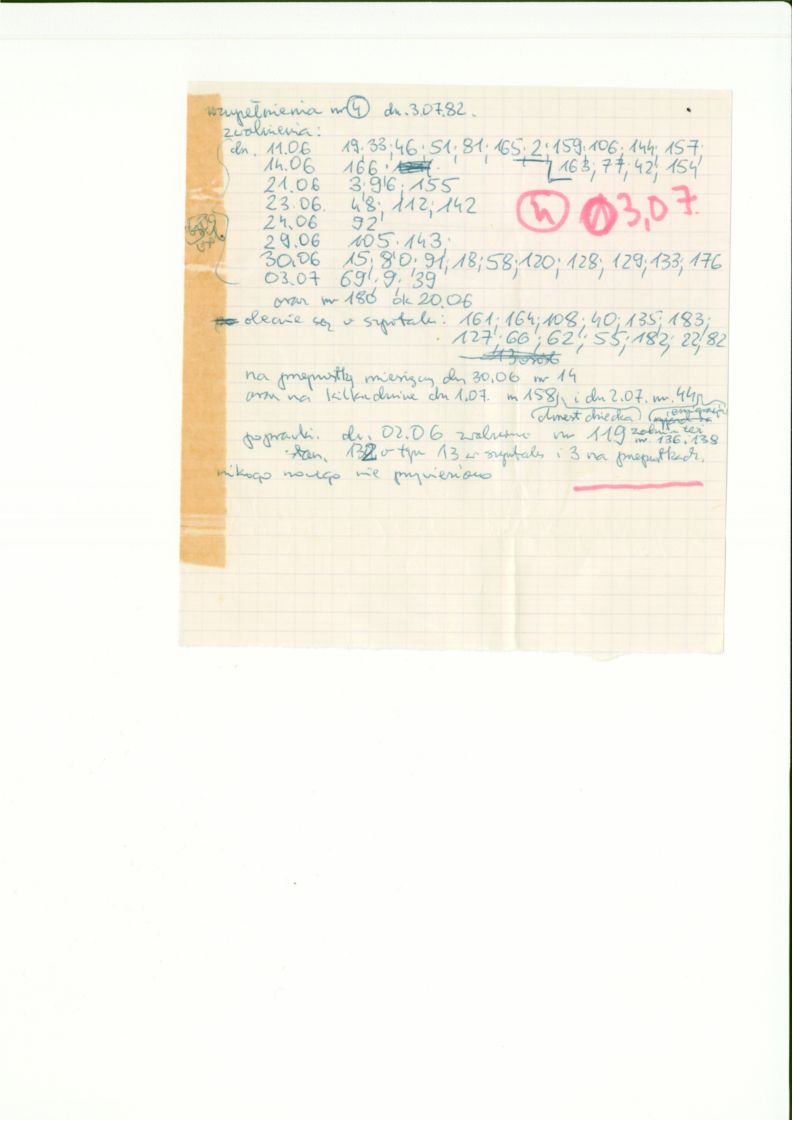 uzupełnienia nr 4 dn. 3.07.82.
zwolnienia:
dn. 11.06 19; 33; 46; 51; 81; 165; 2; 159; 106; 144; 157;
163; 77; 42; 154
14.06 166;
21.06 3; 96; 155
23.06. 48; 112; 142
4 03,07.
24.06 92;
29.06 105; 143;
30.06 15; 80; 91; 18; 58; 120; 128; 129; 133; 176
03.07 69; 9; 39
oraz nr 180 ok 20.06
obecnie są w szpitalu: 161; 164; 108; 40; 135; 183;
127; 66; 62; 55; 182; 22; 82
13 osób
na przepustkę miesięczną dn 30.06 nr 14
oraz na kilkudniowe dn 1.07. nr 158, i dn 2.07. nr. 44
chrzest dziecka
poprawki. dn. 02.06 zwolniono nr 119 zwoln. też
nr. 136, 138
stan. 132 w tym 13 w szpitalu i 3 na przepustkach.
nikogo nowego nie przywieziono